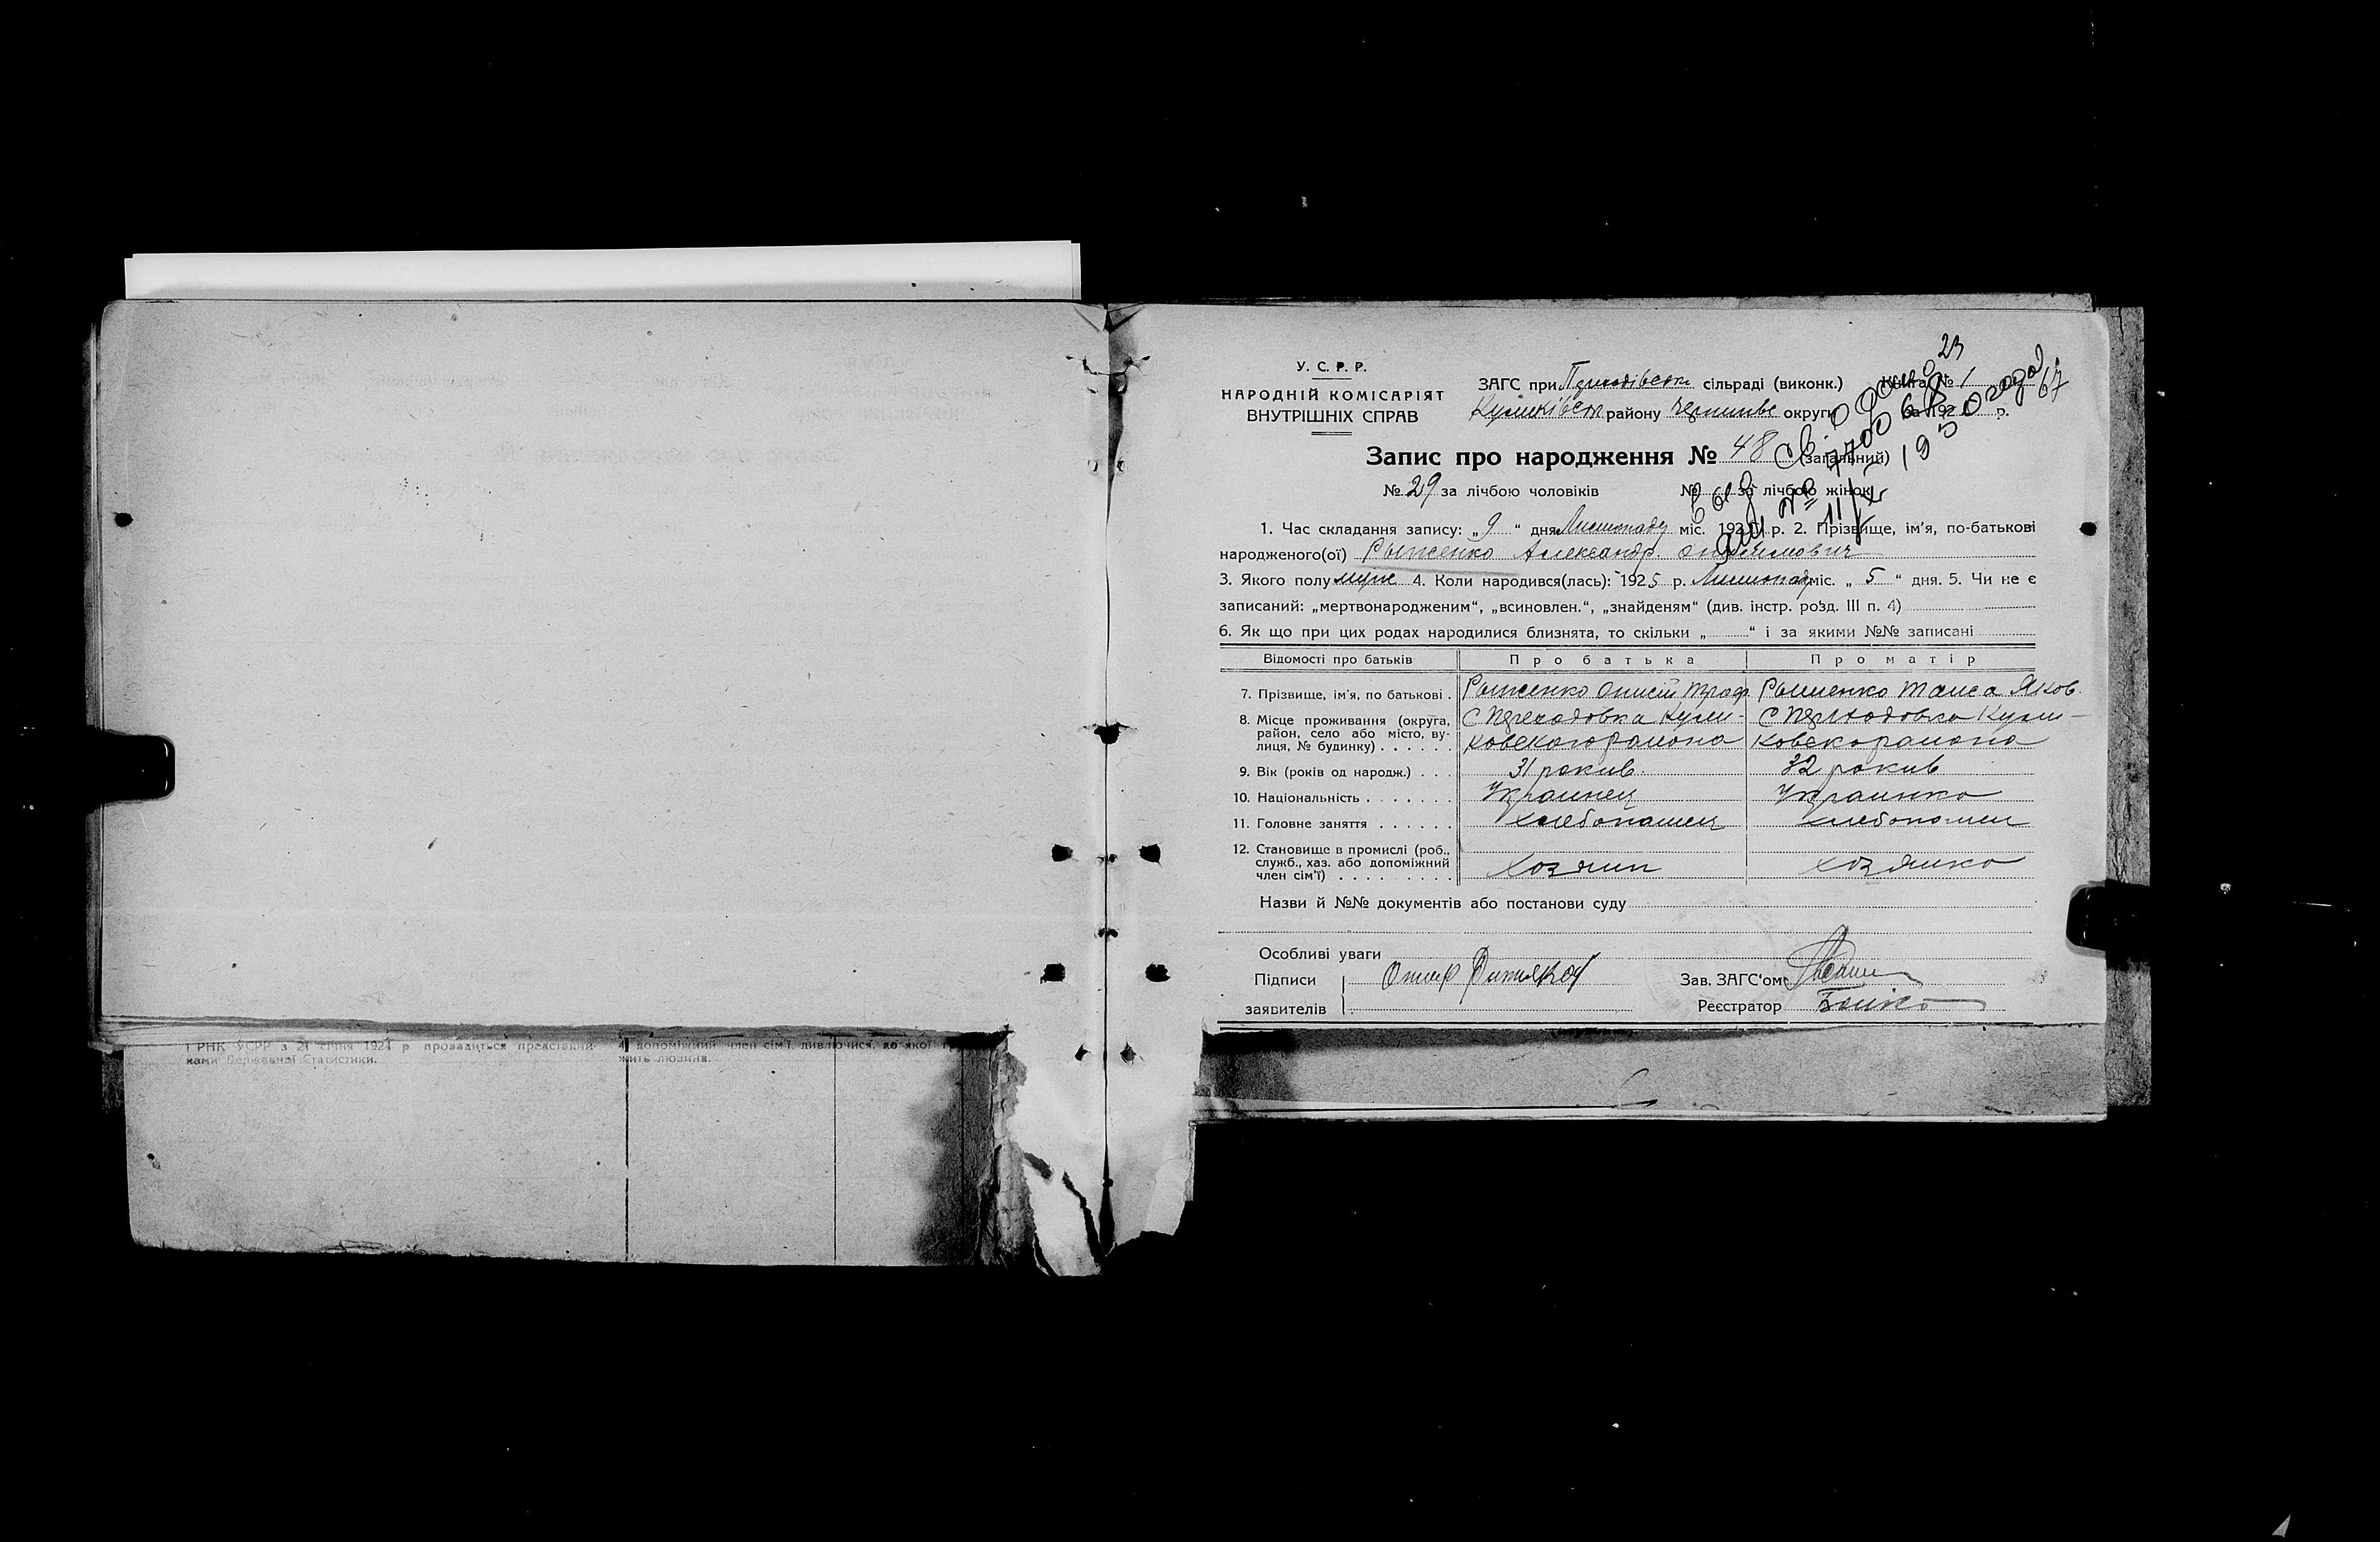 У. С. Р. Р.
НАРОДНІЙ КОМІСАРІЯТ
ВНУТРІШНІХ СПРАВ
ЗАГС при сільраді (виконк.) Книга № 1
району округи за 192 р.
23
67
Запис про народження № 48 (загальний)
№ 29 за лічбою чоловіків № за лічбою жінок
1. Час складання запису: „9“ дня Листопаду міс. 1925 р. 2. Прізвище, ім'я, по-батькові
народженого(ої) Рыженко Александр
3. Якого полу муж 4. Коли народився(лась): 1925 р. Листопад міс. „5“ дня. 5. Чи не є
записаний: „мертвонародженим“, „всиновлен.“, „знайденям“ (див. інстр. розд. III п. 4)
6. Як що при цих родах народилися близнята, то скільки „ “ і за якими №№ записані
Відомості про батьків Про батька Про матір
7. Прізвище, ім'я, по батькові . Рыженко Яков.
8. Місце проживання (округа, с Переходовка Кули- с Переходовка Кули-
район, село або місто, ву-
лиця, № будинку) . . . . . . ковского района
9. Вік (років од народж.) . . . 31 рокив. 32 рокив
10. Національність . . . . . . . Украинец Украинка
11. Головне заняття . . . . . . хлебопашец
12. Становище в промислі (роб.,
служб., хаз. або допоміжний
член сім'ї) . . . . . . . . . хозяин хозяйка
Назви й №№ документів або постанови суду
Особливі уваги
Підписи Зав. ЗАГС'ом
заявителів Реєстратор Бойко
і РНК УСРР з 21 січня 1921 р провадиться представни-
ками Державної Статистики.
допоміжний член сім'ї, дивлючися, до якої
жить людина.